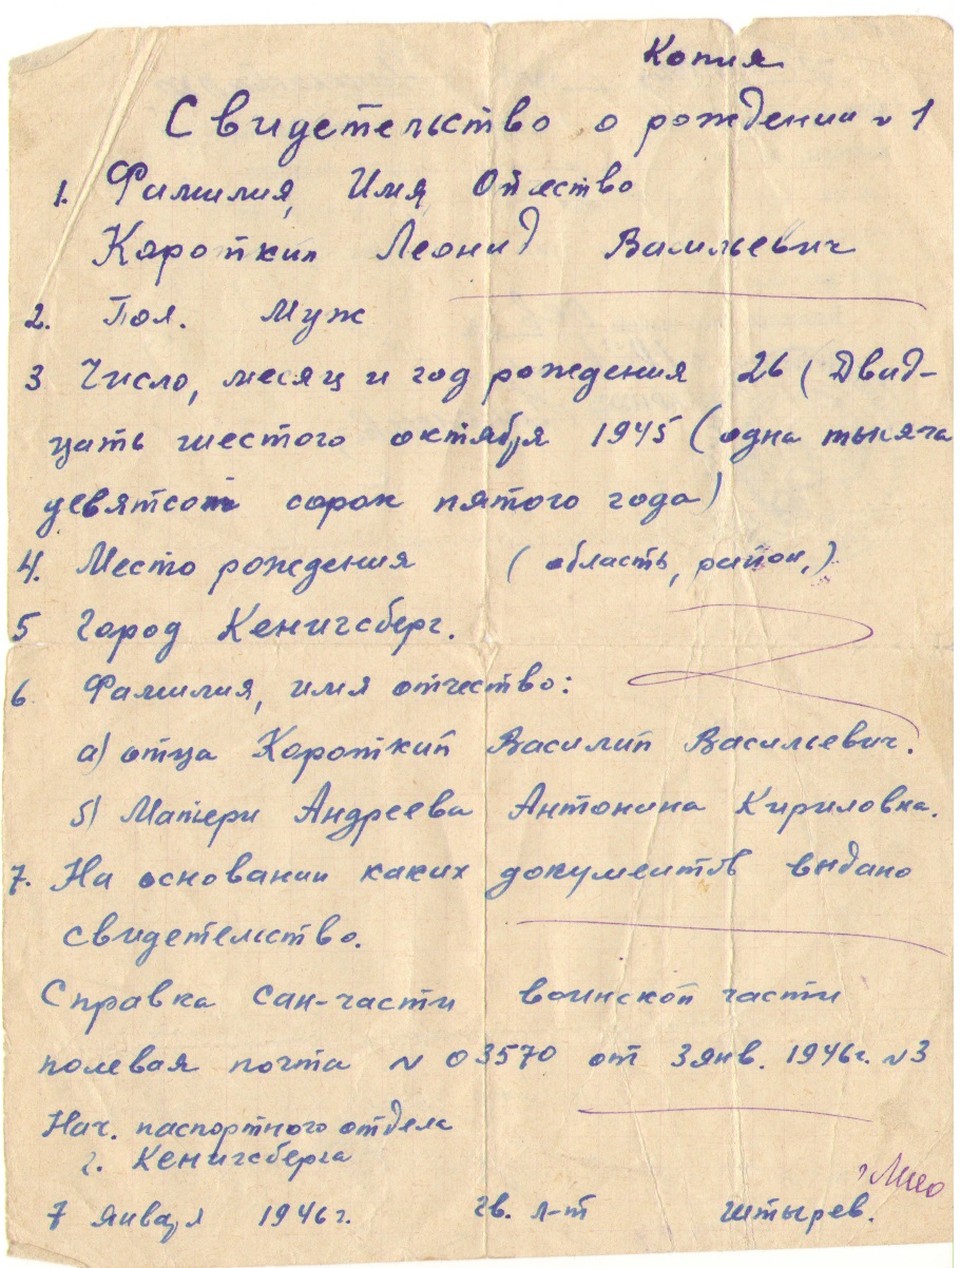 Копия
Свидетельство о рождении № 1
1. Фамилия, Имя Отчество
Короткий Леонид Васильевич
2. Пол. Муж
3 Число, месяц и год рождения 26 (Двад-
цать шестого октября 1945 (одна тысяча
девятсот сорок пятого года)
4. Место рождения (область, район,)
5 Город Кенигсберг.
6 Фамилия, имя отчество:
а) отца Короткий Василий Васильевич.
б) Матери Андреева Антонина Кириловна.
7. На основании каких документов выдано
свидетельство.
Справка Сан-части воинской части
полевая почта № 03570 от 3 янв. 1946г. №3
Нач. паспортного отдела
г. Кенигсберга
7 января 1946г. гв. л-т Штырев.